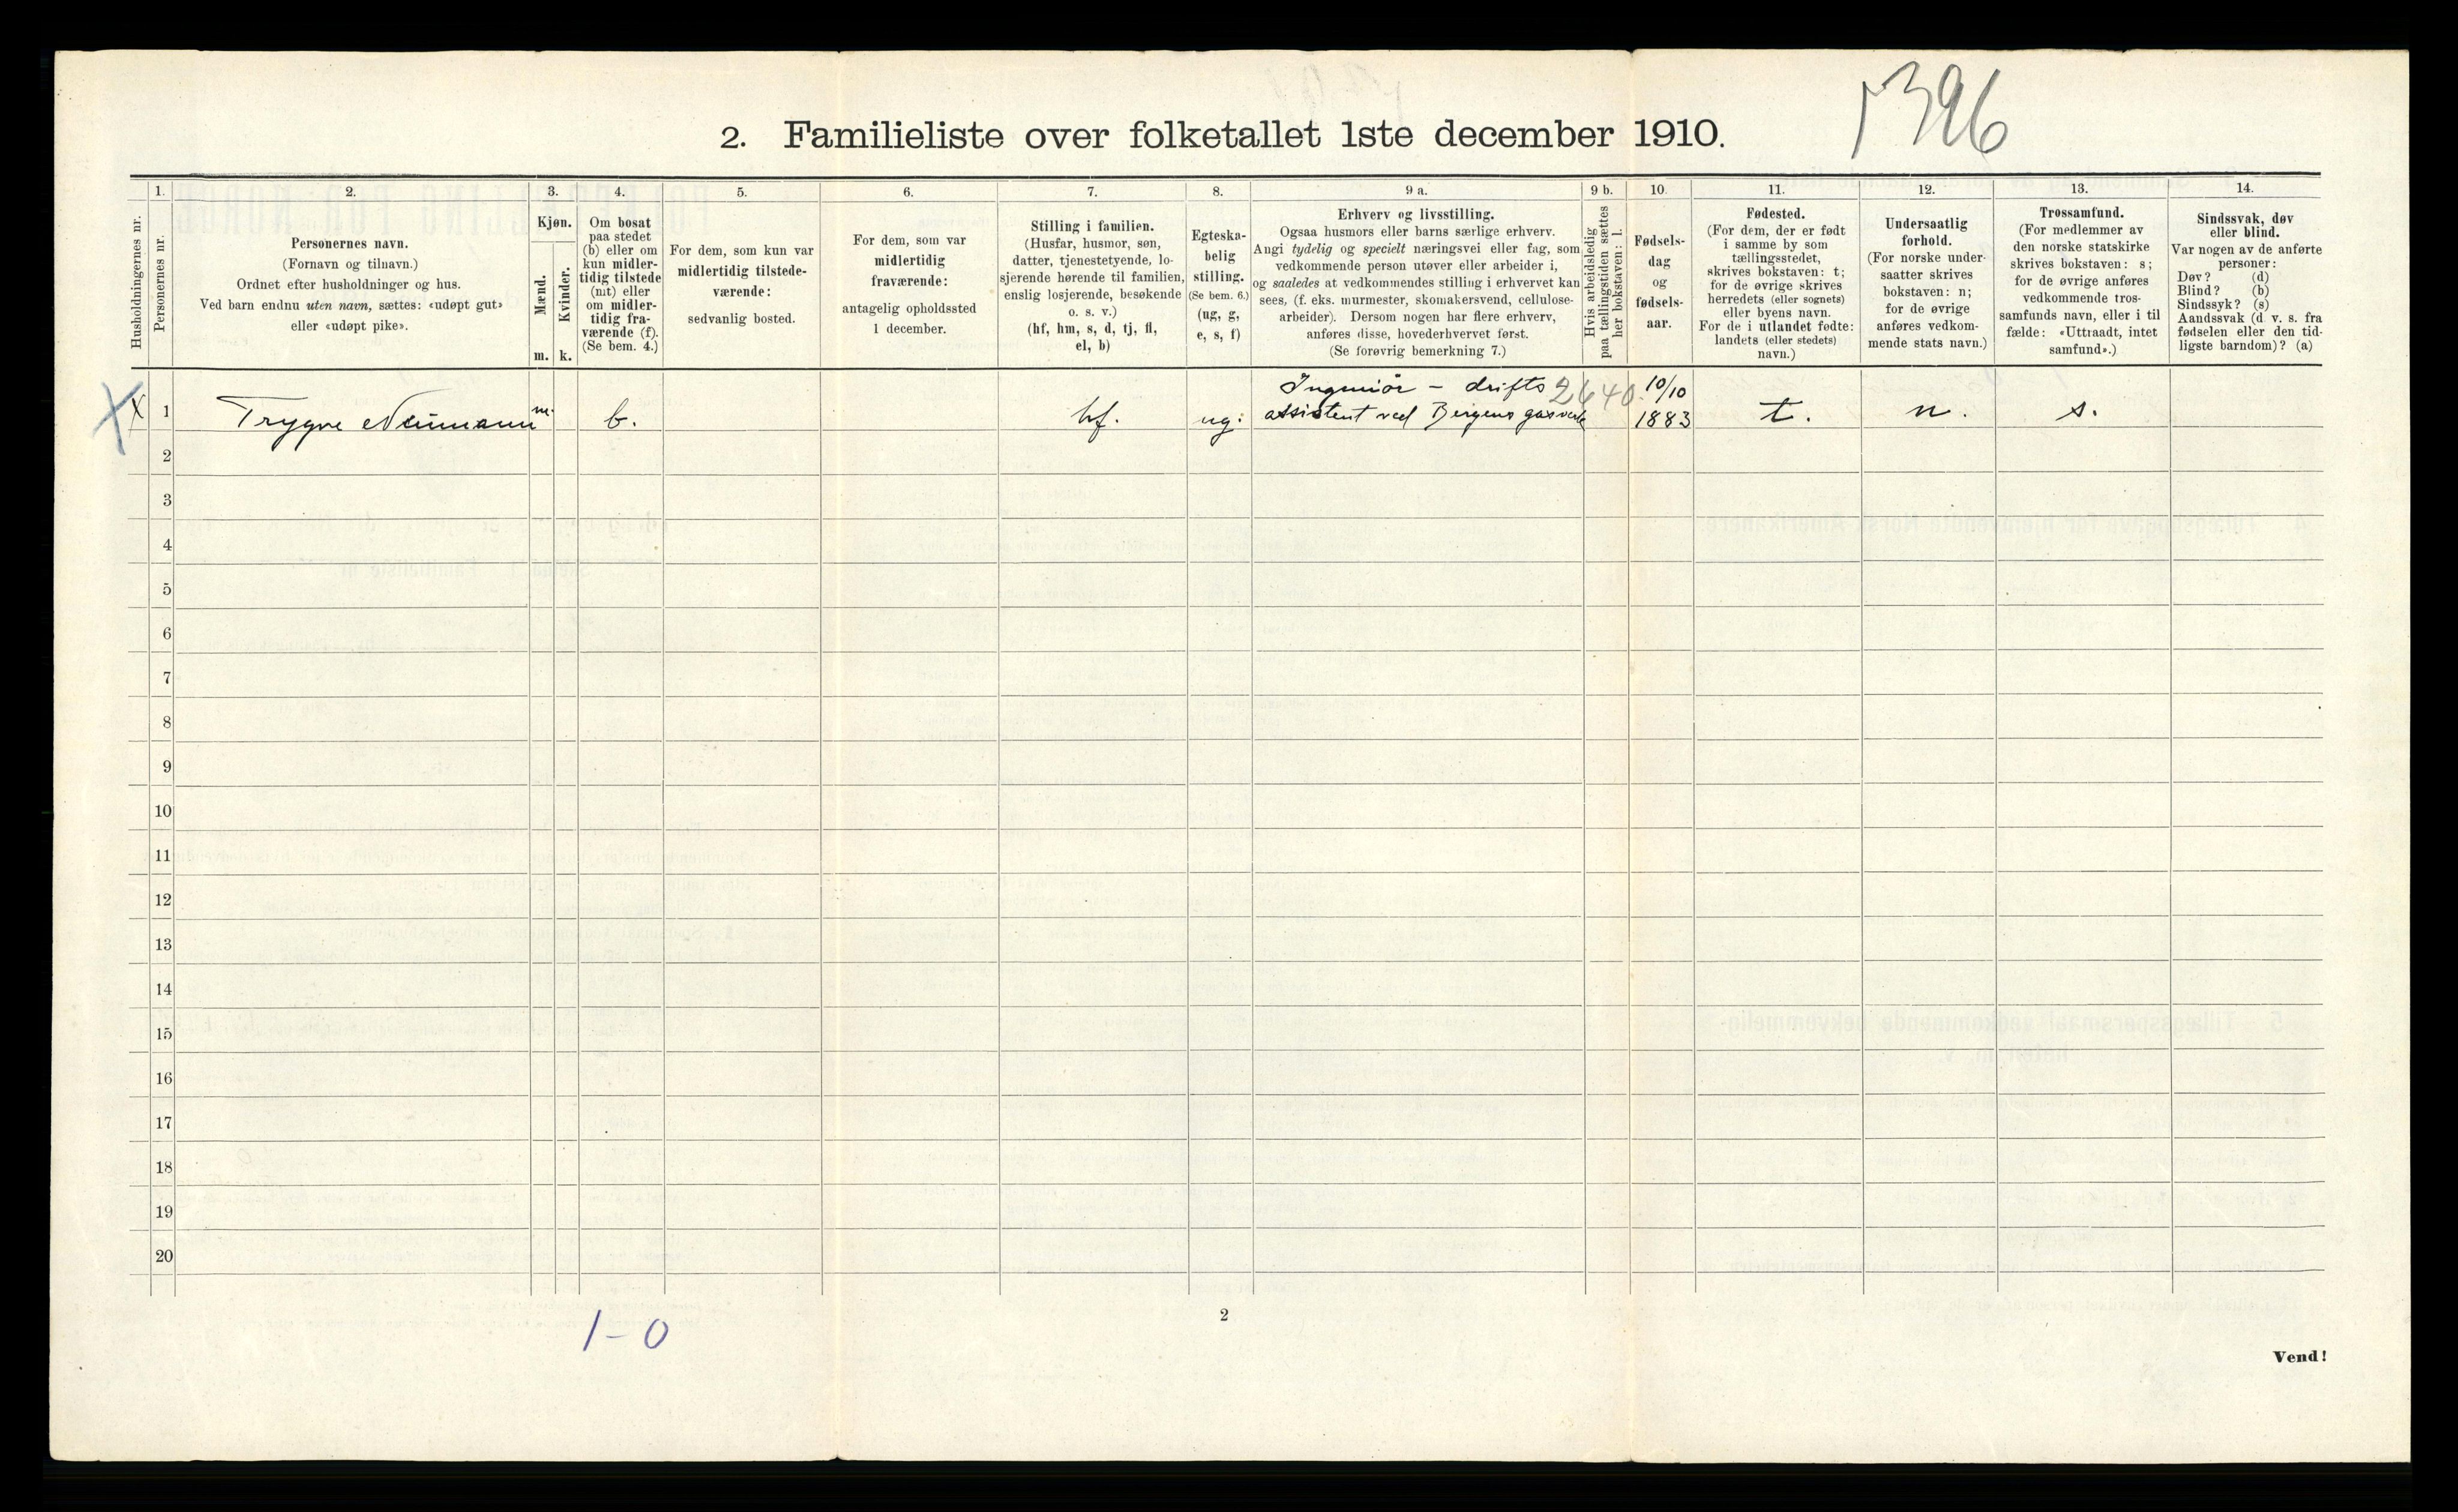 1396
2. Familieliste over folketallet 1ste december 1910.
Husholdningernes nr.
1.
Personernes nr.
2.
Personernes navn.
(Fornavn og tilnavn.)
Ordnet efter husholdninger og hus.
Ved barn endnu uten navn, sættes: «udøpt gut»
eller «udøpt pike».
3.
Kjøn.
Mænd.
m.
Kvinder.
k.
4.
Om bosat
paa stedet
(b) eller om
kun midler-
tidig tilstede
(mt) eller
om midler-
tidig fra-
værende (f).
(Se bem. 4.)
5.
For dem, som kun var
midlertidig tilstede-
værende:
sedvanlig bosted.
6.
For dem, som var
midlertidig
fraværende:
antagelig opholdssted
1 december.
7.
Stilling i familien.
(Husfar, husmor, søn,
datter, tjenestetyende, lo-
sjerende hørende til familien,
enslig losjerende, besøkende
o. s. v.)
(hf, hm, s, d, tj, fl,
el, b)
8.
Egteska-
belig
stilling.
(Se bem. 6.)
(ug, g,
e, s, f)
9 a.
Erhverv og livsstilling.
Ogsaa husmors eller barns særlige erhverv.
Angi tydelig og specielt næringsvei eller fag, som
vedkommende person utøver eller arbeider i,
og saaledes at vedkommendes stilling i erhvervet kan
sees, (f. eks. murmester, skomakersvend, cellulose-
arbeider). Dersom nogen har flere erhverv,
anføres disse, hovederhvervet først.
(Se forøvrig bemerkning 7.)
9 b.
Hvis arbeidsledig
paa tællingstiden sættes
her bokstaven: l.
10.
Fødsels-
dag
og
fødsels-
aar.
11.
Fødested.
(For dem, der er født
i samme by som
tællingsstedet,
skrives bokstaven: t;
for de øvrige skrives
herredets (eller sognets)
eller byens navn.
For de i utlandet fødte:
landets (eller stedets)
navn.)
12.
Undersaatlig
forhold.
(For norske under-
saatter skrives
bokstaven: n;
for de øvrige
anføres vedkom-
mende stats navn.)
13.
Trossamfund.
(For medlemmer av
den norske statskirke
skrives bokstaven: s;
for de øvrige anføres
vedkommende tros-
samfunds navn, eller i til
fælde: «Uttraadt, intet
samfund».)
14.
Sindssvak, døv
eller blind.
Var nogen av de anførte
personer:
Døv? (d)
Blind? (b)
Sindssyk? (s)
Aandssvak (d. v. s. fra
fødselen eller den tid-
ligste barndom)? (a)
X X 1 Trygve Neumann m. b. hf. ug: Ingeniør - drifts 2640 10/10
assistent ved Bergens gasverk 1883 t. n. s.
2
3
4
5
6
7
8
9
10
11
12
13
14
15
16
17
18
19
20
1-0
2
Vend!